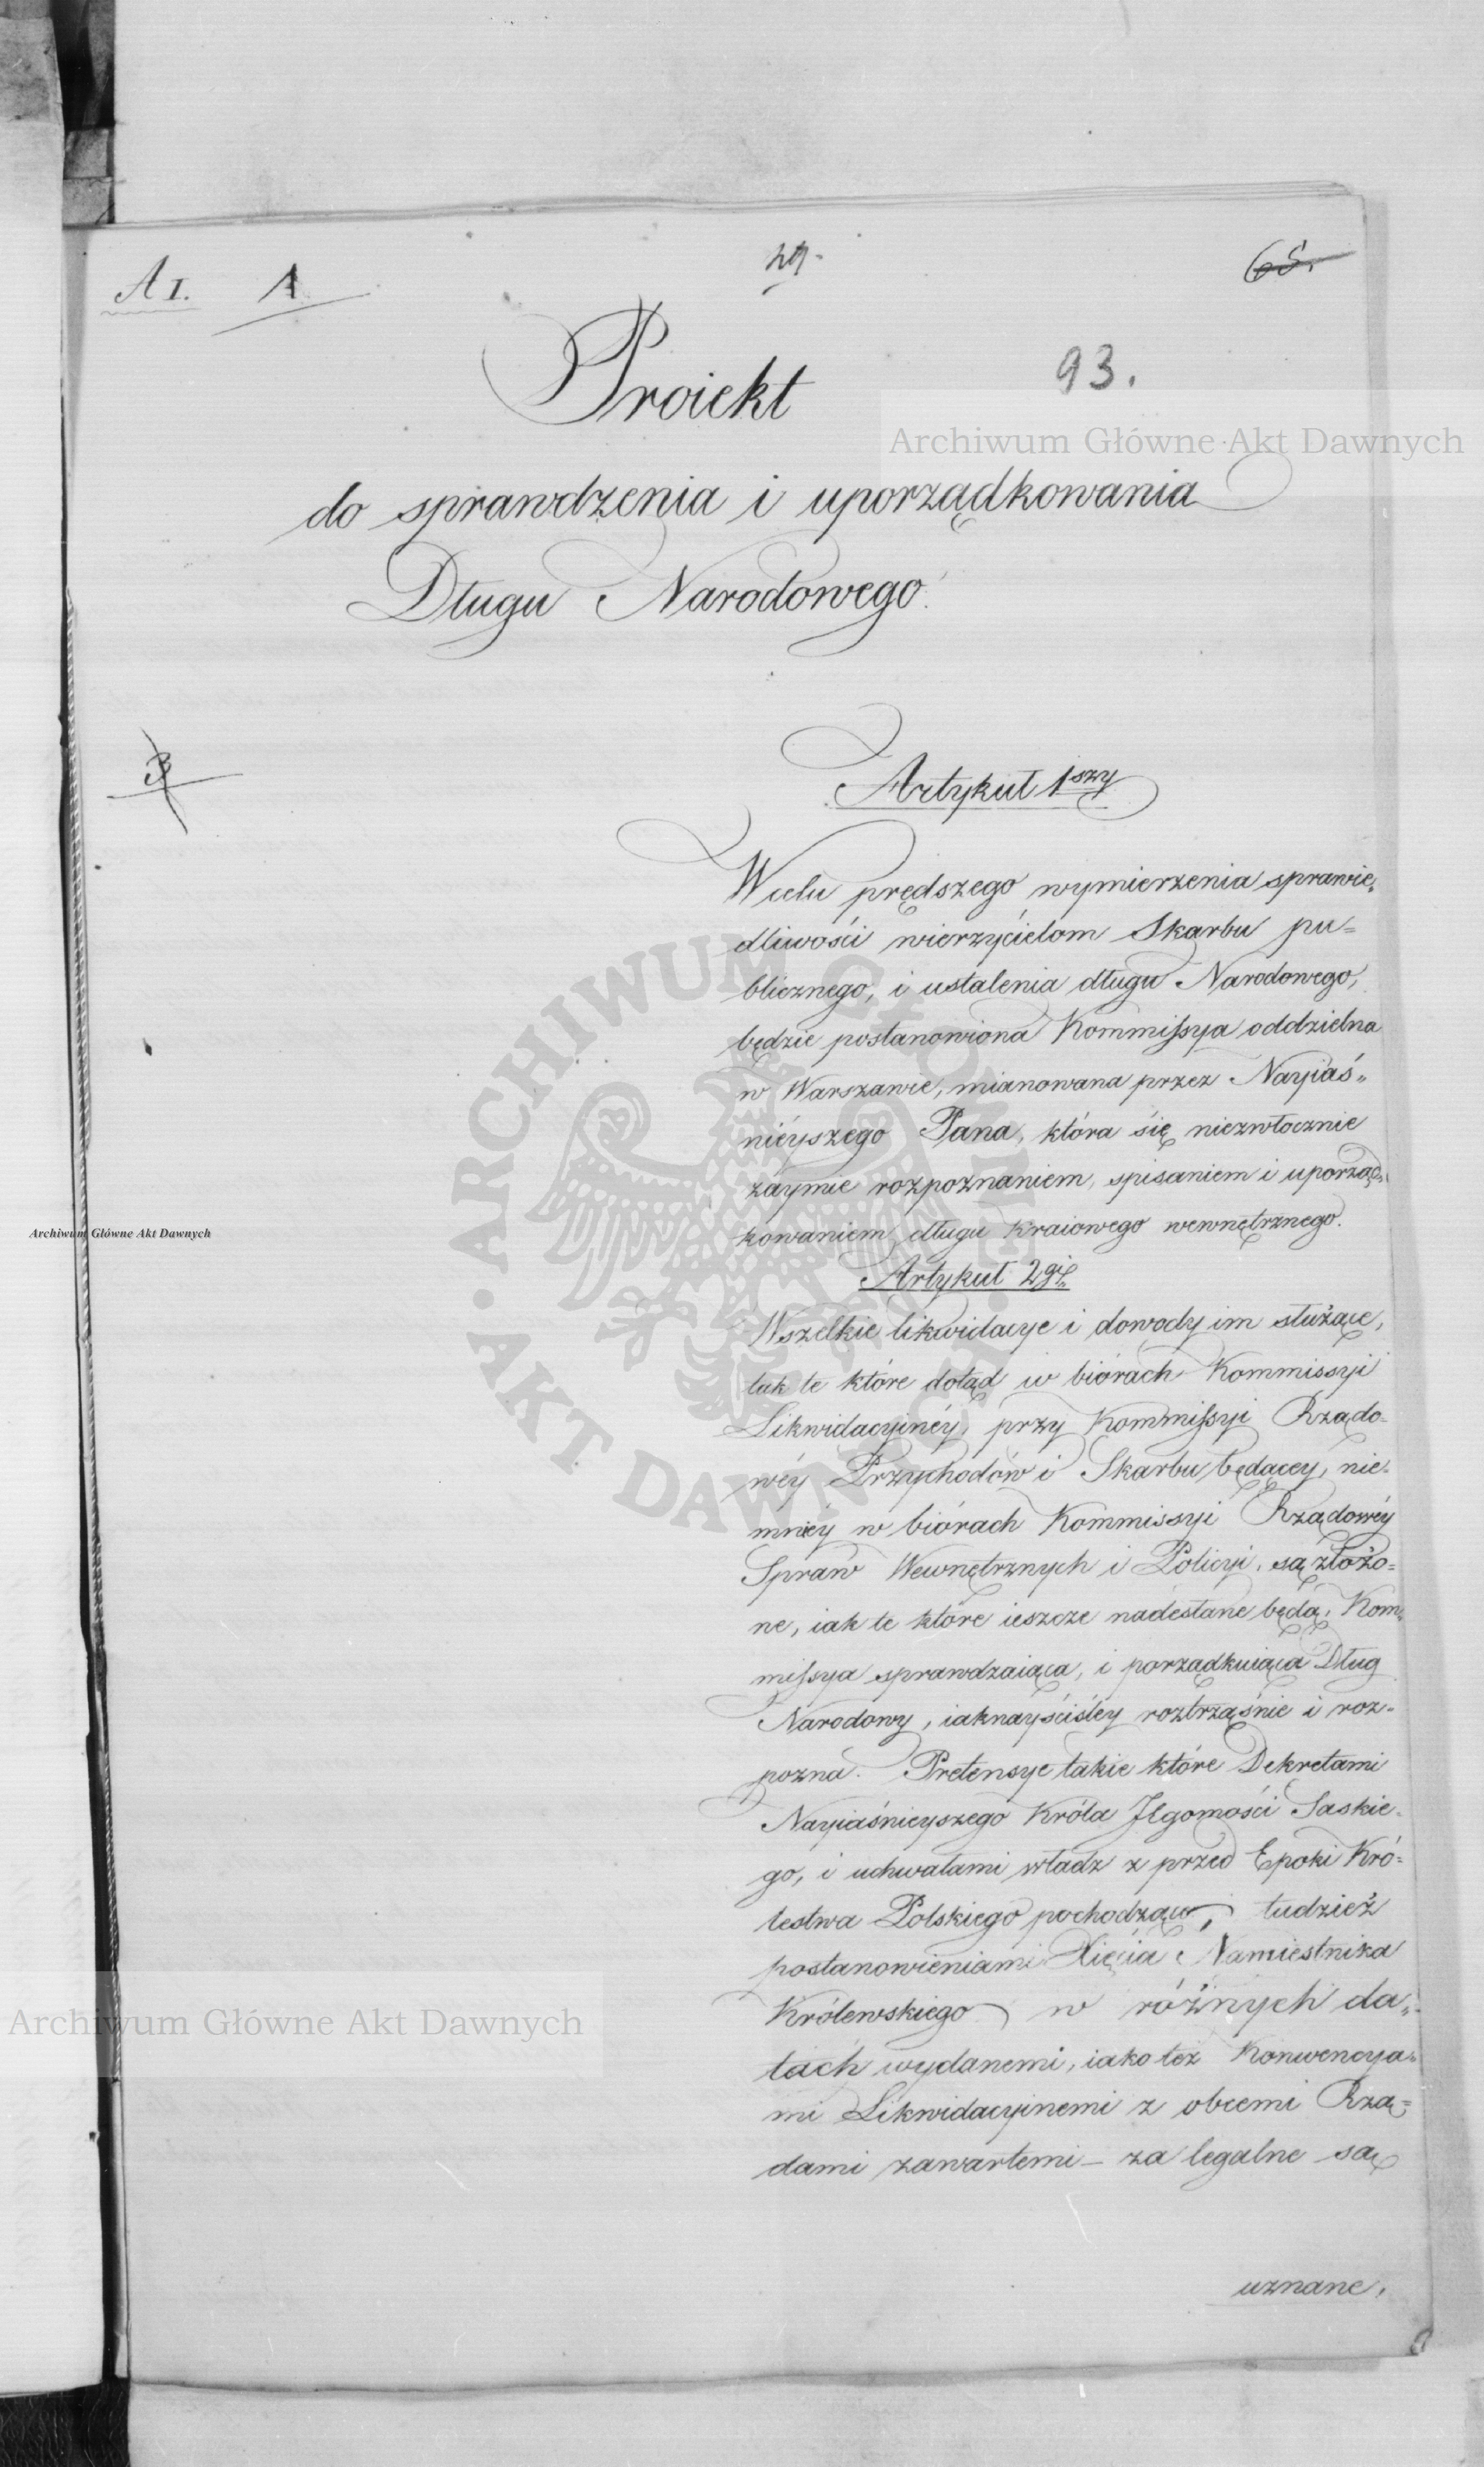 A I. A 65.
Proiekt 93.
do sprawdzenia i uporządkowania
Długu Narodowego.
3
Artykuł 1szy
W celu prędszego wymierzenia sprawie„
dliwości wierzycielom Skarbu pu=
blicznego, i ustalenia długu Narodowego,
będzie postanowiona Kommissya oddzielna
w Warszawie, mianowana przez Nayiaś„
nieyszego Pana, która się niezwłocznie
zaymie rozpoznaniem, spisaniem i uporząd„
kowaniem długu Kraiowego wewnętrznego.
Artykuł 2gi
Wszelkie likwidacye i dowody im służące,
tak te które dotąd w biórach Kommissyi
Likwidacyinéy, przy Kommissyi Rządo=
wéy Przychodów i Skarbu będącey, nie=
mniéy w biórach Kommissyi Rządowéy
Spraw Wewnętrznych i Policyi, są złożo=
ne, iak te które ieszcze nadesłane będą, Kom„
missya sprawdzaiąca, i porządkuiąca Dług
Narodowy, iaknayściśley roztrząśnie i roz=
pozna. Pretensye takie które Dekretami
Nayiaśnieyszego Króla Jegomości Saskie=
go, i uchwałami władz z przed Epoki Kró=
lestwa Polskiego pochodzące, tudzież
postanowieniami Xięcia Namiestnika
Królewskiego w różnych da„
tach wydanemi, iako też Konwencya„
mi Likwidacyinemi z obcemi Rzą=
dami zawartemi – za legalne są
uznane,
Archiwum Główne Akt Dawnych
Archiwum Główne Akt Dawnych
Archiwum Główne Akt Dawnych
ARCHIWUM GŁÓWNE AKT DAWNYCH